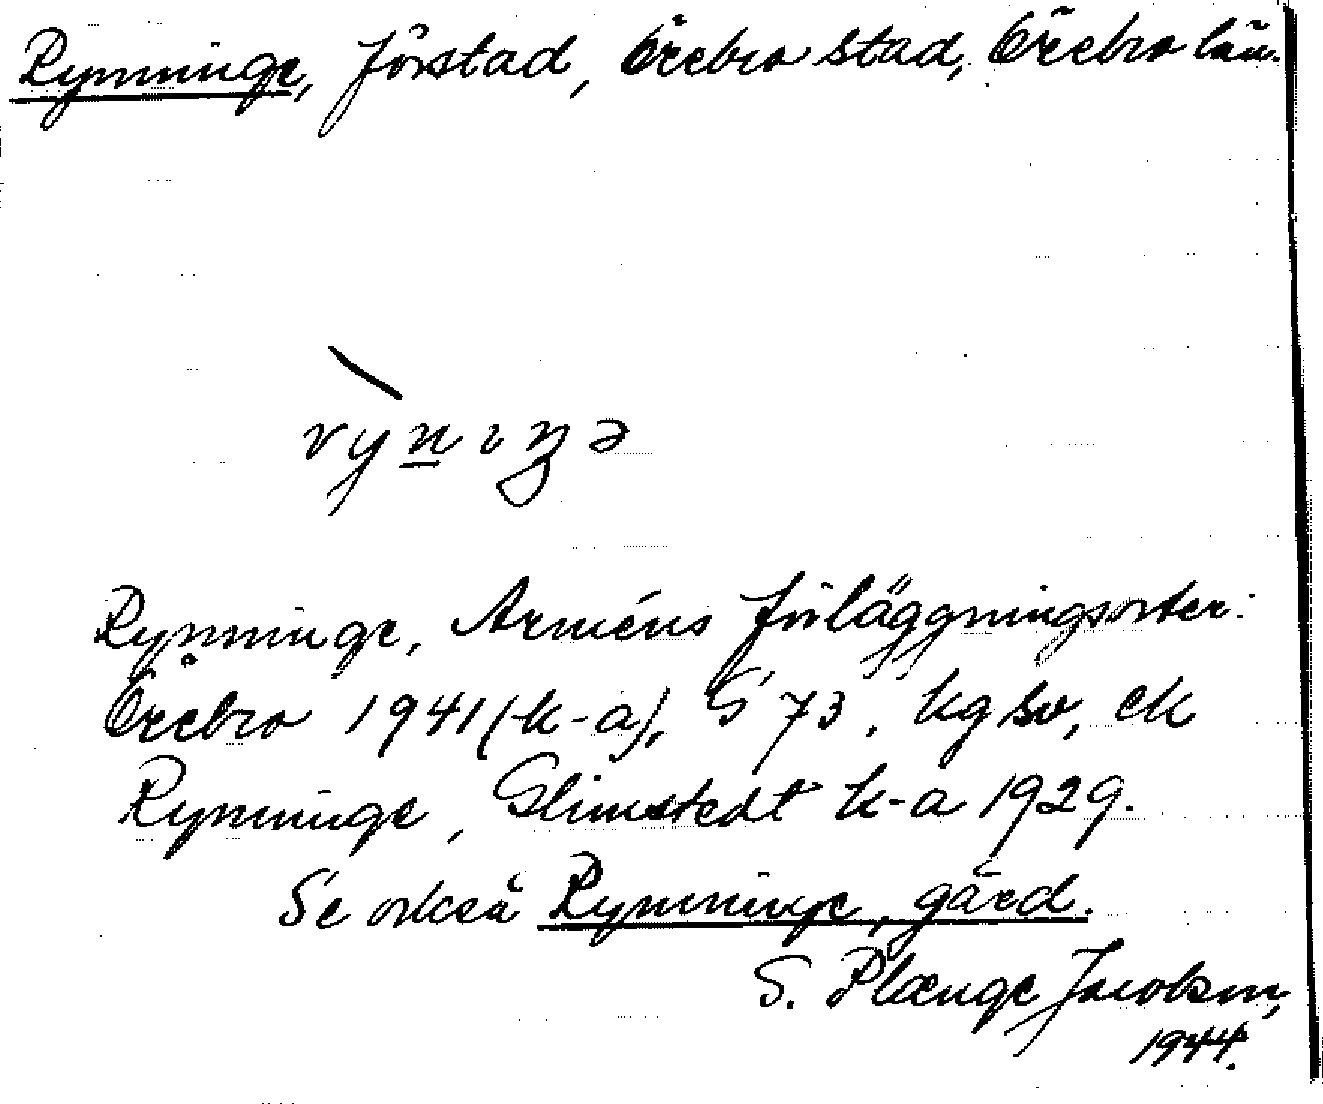 Rynninge, förstad, Örebro stad, Örebro län.
Rynninge, Arméns förläggningsorter:
Örebro 1941 (k-a), S 73, kg sv, ek
Rynninge, Glimstedt k-a 1929.
Se också Rynninge, gård.
S. Plænge Jacobson,
1944.